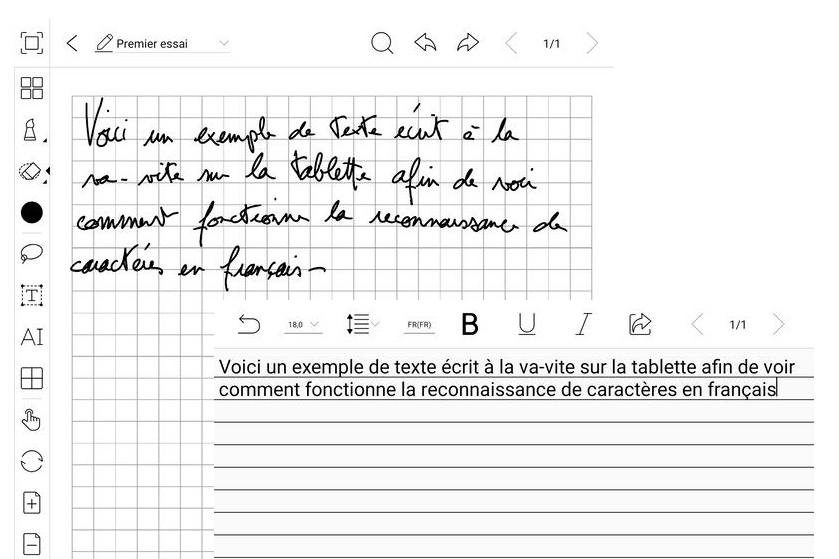 Premier essai
1/1
Voici un exemple de texte écrit à la
va-vite sur la tablette afin de voir
comment fonctionne la reconnaissance de
caractères en français
18,0
FR(FR)
B
U
I
1/1
T
AI
Voici un exemple de texte écrit à la va-vite sur la tablette afin de voir
comment fonctionne la reconnaissance de caractères en français